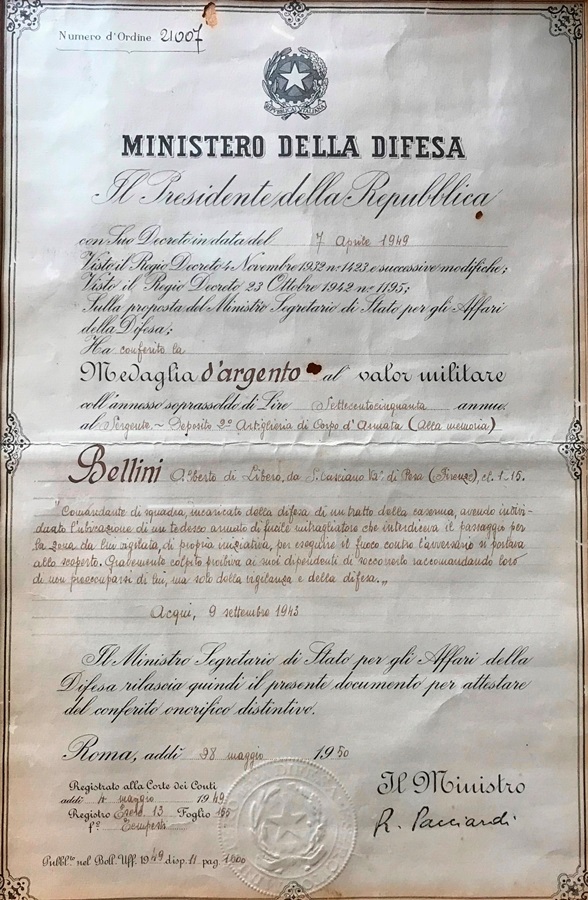 Numero d'Ordine 21007
MINISTERO DELLA DIFESA
Il Presidente della Repubblica
con Suo Decreto in data del 7 Aprile 1949
Visto il Regio Decreto 4 Novembre 1932 nº 1423 e successive modifiche;
Visto il Regio Decreto 23 Ottobre 1942 nº 1195;
Sulla proposta del Ministro Segretario di Stato per gli Affari
della Difesa;
Ha conferito la
Medaglia d'argento al valor militare
coll'annesso soprassoldo di Lire Settecentocinquanta annue
al Sergente ~ Deposito 2º Artiglieria di Corpo d'Armata (Alla memoria)
Bellini Alberto di Libero, da S. Casciano Val di Pesa (Firenze), cl. 1915.
"Comandante di squadra, incaricato della difesa di un tratto della caserma, avendo indivi-
duato l'ubicazione di un tedesco armato di fucile mitragliatore che interdiceva il passaggio per
la zona da lui vigilata, di propria iniziativa, per eseguire il fuoco contro l'avversario si portava
allo scoperto. Gravemente colpito proibiva ai suoi dipendenti di soccorrerlo raccomandando loro
di non preoccuparsi di lui, ma solo della vigilanza e della difesa.„
Acqui, 9 settembre 1943
Il Ministro Segretario di Stato per gli Affari della
Difesa rilascia quindi il presente documento per attestare
del conferito onorifico distintivo.
Roma, addì 28 maggio 1950
Registrato alla Corte dei Conti
addì maggio 1949
Registro 13 Foglio
Il Ministro
R. Pacciardi
Pubbl.to nel Boll. Uff. 1949 disp. 11 pag. 1500